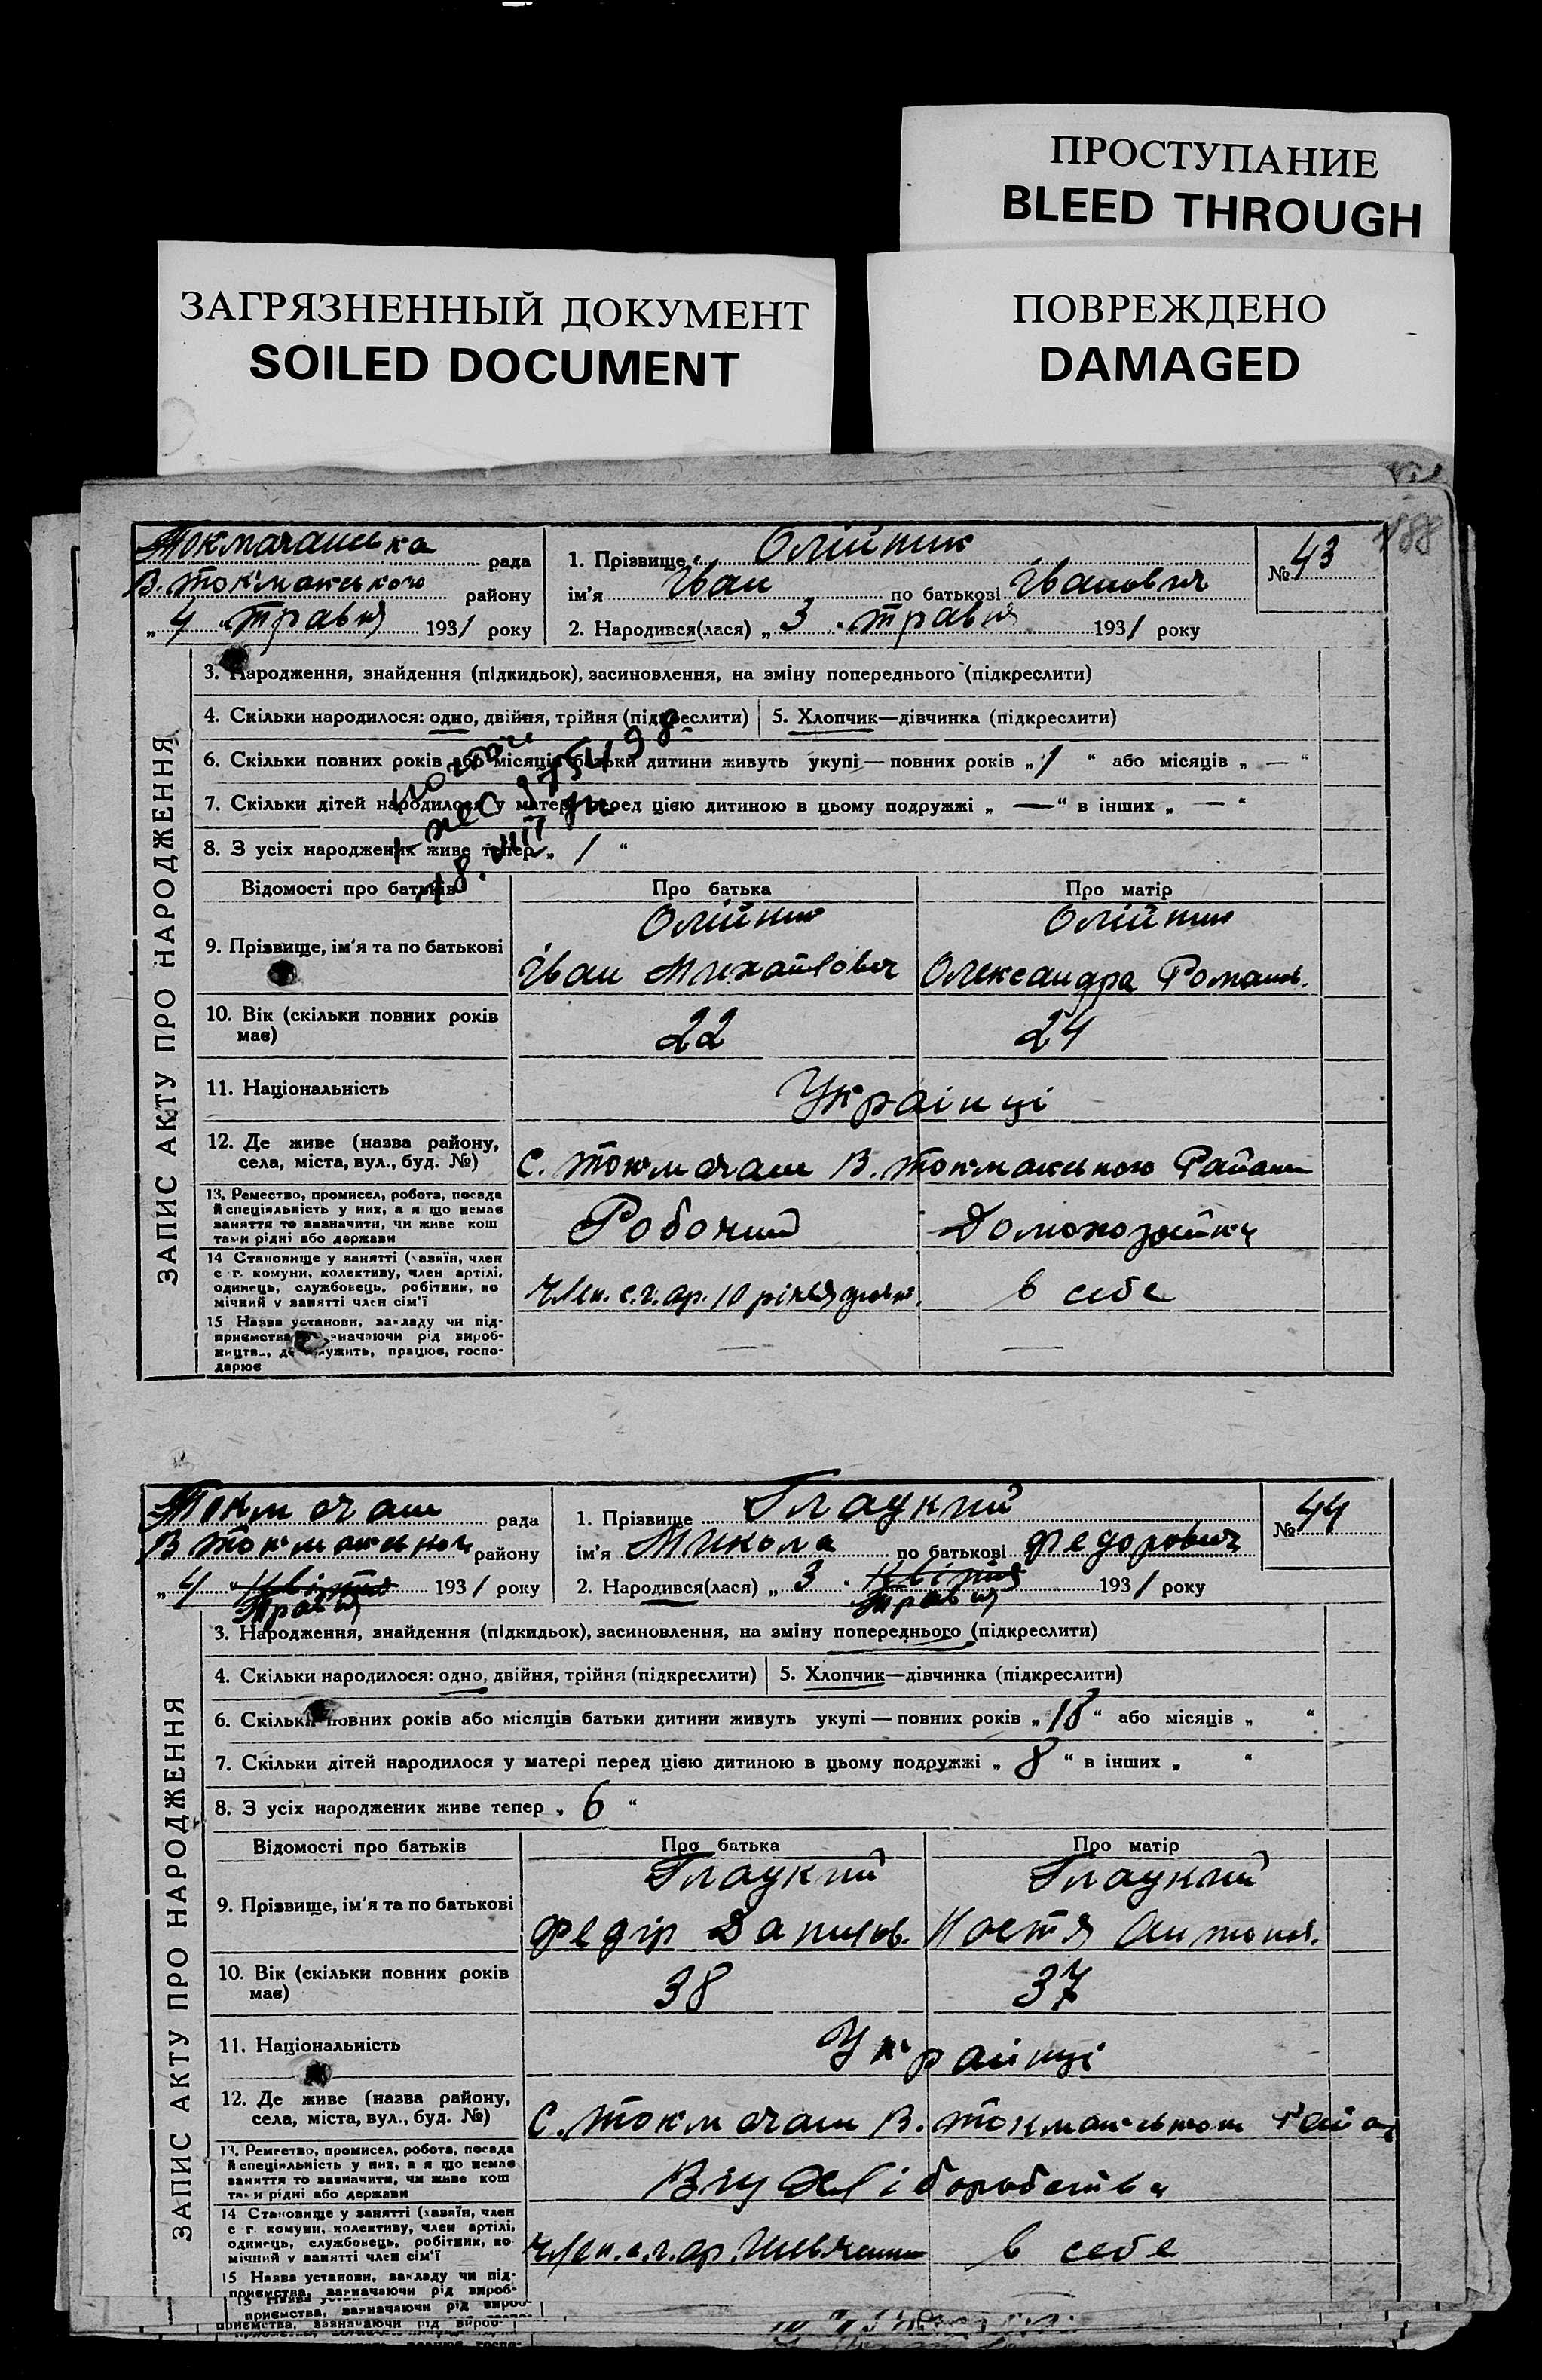 ПРОСТУПАНИЕ
BLEED THROUGH
ЗАГРЯЗНЕННЫЙ ДОКУМЕНТ
SOILED DOCUMENT
ПОВРЕЖДЕНО
DAMAGED
188
Токмачанська рада
В. Токмакського району
„4 травня 1931 року
1. Прізвище Олійник
ім'я Іван по батькові Іванович
2. Народився(лася) „3 травня 1931 року
№ 43
ЗАПИС АКТУ ПРО НАРОДЖЕННЯ
3. Народження, знайдення (підкидьок), засиновлення, на зміну попереднього (підкреслити)
4. Скільки народилося: одно, двійня, трійня (підкреслити) 5. Хлопчик—дівчинка (підкреслити)
6. Скільки повних років або місяців батьки дитини живуть укупі — повних років „1“ або місяців „—“
7. Скільки дітей народилося у матері перед цією дитиною в цьому подружжі „—“ в інших „—“
8. З усіх народжених живе тепер „1“
Відомості про батьків Про батька Про матір
9. Прізвище, ім'я та по батькові
Олійник Олійник
Іван Михайлович Олександра Романів.
10. Вік (скільки повних років має) 22 24
11. Національність Українці
12. Де живе (назва району,
села, міста, вул., буд. №) С. Токмачан В. Токмакського Району
13. Ремество, промисел, робота, посада
й спеціяльність у них, а я що немає
заняття то зазначити, чи живе кош
тами рідні або держави
Робочий Домохозяйка
14 Становище у занятті (хазяїн, член
с г. комуни, колективу, член артілі,
одинець, службовець, робітник, по
мічний у занятті член сім'ї
Член. с.г. ар. 10 річчя в себе
15 Назва установи, закладу чи під-
приємства, зазначаючи рід вироб-
ництва, де служить, працює, госпо-
дарює
— —
Токмачан рада
В Токмакського району
„4 Квітня 1931 року
Травня
1. Прізвище Глацкий
ім'я Микола по батькові Федорович
2. Народився(лася) „3 Квітня 1931 року
Травня
№ 44
ЗАПИС АКТУ ПРО НАРОДЖЕННЯ
3. Народження, знайдення (підкидьок), засиновлення, на зміну попереднього (підкреслити)
4. Скільки народилося: одно, двійня, трійня (підкреслити) 5. Хлопчик—дівчинка (підкреслити)
6. Скільки повних років або місяців батьки дитини живуть укупі — повних років „18“ або місяців „ “
7. Скільки дітей народилося у матері перед цією дитиною в цьому подружжі „8“ в інших „ “
8. З усіх народжених живе тепер „6“
Відомості про батьків Про батька Про матір
9. Прізвище, ім'я та по батькові
Глацкий Глацкий
Федір Данилов. Костя Антонів.
10. Вік (скільки повних років має) 38 37
11. Національність Українці
12. Де живе (назва району,
села, міста, вул., буд. №) С. Токмачан В. Токмакського Району
13. Ремество, промисел, робота, посада
й спеціяльність у них, а я що немає
заняття то зазначити, чи живе кош
тами рідні або держави
Від Хліборобства
14 Становище у занятті (хазяїн, член
с г. комуни, колективу, член артілі,
одинець, службовець, робітник, по
мічний у занятті член сім'ї
Член. с.г. ар. Шевченка в себе
15 Назва установи, закладу чи під-
приємства, зазначаючи рід вироб-
приємства, зазначаючи рід вироб-
приємства, зазначаючи рід вироб-